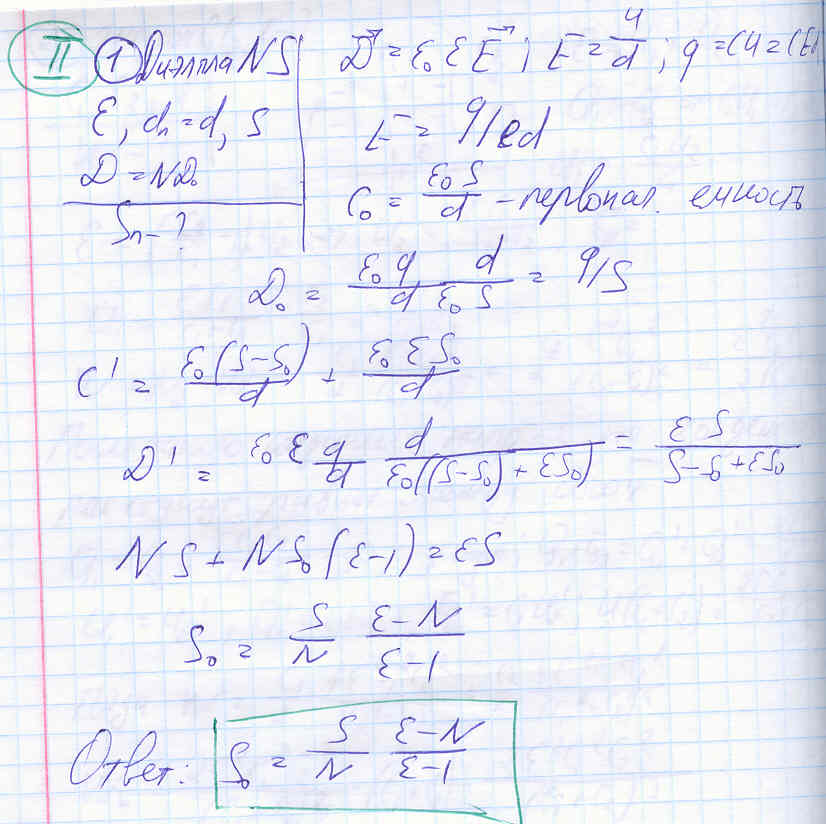 II ① Диэл пла NS
ε, dп = d, S
D = ND₀
Sп - ?
D⃗ = ε₀εE⃗ ; E = U/d ; q = CU = CEd
E = q/cd
C₀ = ε₀S/d - первонач. емкость
D₀ = ε₀q/d d/ε₀S = q/S
C' = ε₀(S-S₀)/d + ε₀εS₀/d
D' = ε₀ε q/d d/ε₀((S-S₀) + εS₀) = εS/S-S₀+εS₀
NS + NS₀(ε-1) = εS
S₀ = S/N ε-N/ε-1
Ответ: S₀ = S/N ε-N/ε-1